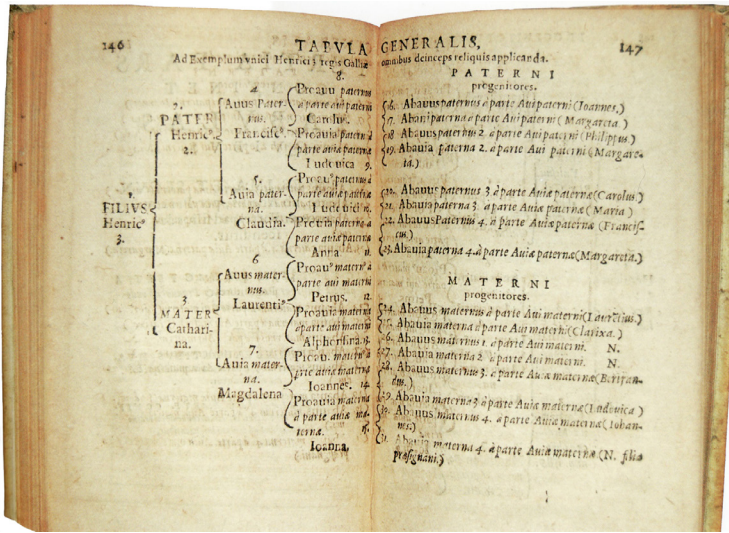 146
TABVLA GENERALIS,
147
Ad Exemplum vnici Henrici 3 regis Galliæ omnibus deinceps reliquis applicanda.
1.
FILIVS
Henricᵒ
3.
2.
PATER
Henricᵒ.
2.
3
MATER
Cathari-
na.
4
Avus Pater-
nus.
Franciscᵒ.
5.
Avia pater-
na.
Claudia.
6
Avus mater-
nus.
Laurentiᵒ
7.
Avia mater-
na.
Magdalena
8.
Proavu paternus
à parte avi paterni
Carolus.
Proavia paterna à
parte avi paterni
Ludovica 9.
Proauᵒ paternus à
parte aviæ paternæ
Ludovici 10.
Proavia paterna à
parte aviæ paternæ
Anna 11.
Proauᵒ maternᵒ à
parte avi materni
Petrus. 12.
Proavia materna
à parte avi materni
Alphorsina. 13.
Proau. maternᵒ à
parte aviæ maternæ
Ioannes. 14.
Proavia materna
à parte aviæ ma-
ternæ. 15.
Ioanna.
PATERNI
progenitores.
16. Abauus paternus à parte Aui paterni (Ioannes.)
17. Abaui paterna à parte Aui paterni (Margareta.)
18 Abauus paternus 2. à parte Aui paterni (Philippus.)
19. Abauia paterna 2. à parte Aui paterni (Margare-
ta.)
20. Abauus paternus 3 à parte Auiæ paternæ (Carolus.)
21. Abauia paterna 3. à parte Auiæ paternæ (Maria)
22. Abauus Paternus 4. à parte Auiæ paternæ (Francis-
cus.)
23. Abauia paterna 4. à parte Auiæ paternæ (Margareta.)
MATERNI
progenitores.
24. Abauus maternus à parte Aui materni (Laurētius.)
25. Abauia materna à parte Aui materni (Clarixa.)
26. Abauus maternus 2. à parte Aui materni. N.
27. Abauia materna 2. à parte Aui materni. N.
28. Abauus maternus 3. à parte Auiæ maternæ (Bertran-
dus.)
29. Abauia materna 3 à parte Auiæ maternæ (Ludouica)
30. Abauus maternus 4. à parte Auiæ maternæ (Iohan-
nes.)
31. Abauia materna 4. à parte Auiæ maternæ (N. filia
præsignani.)